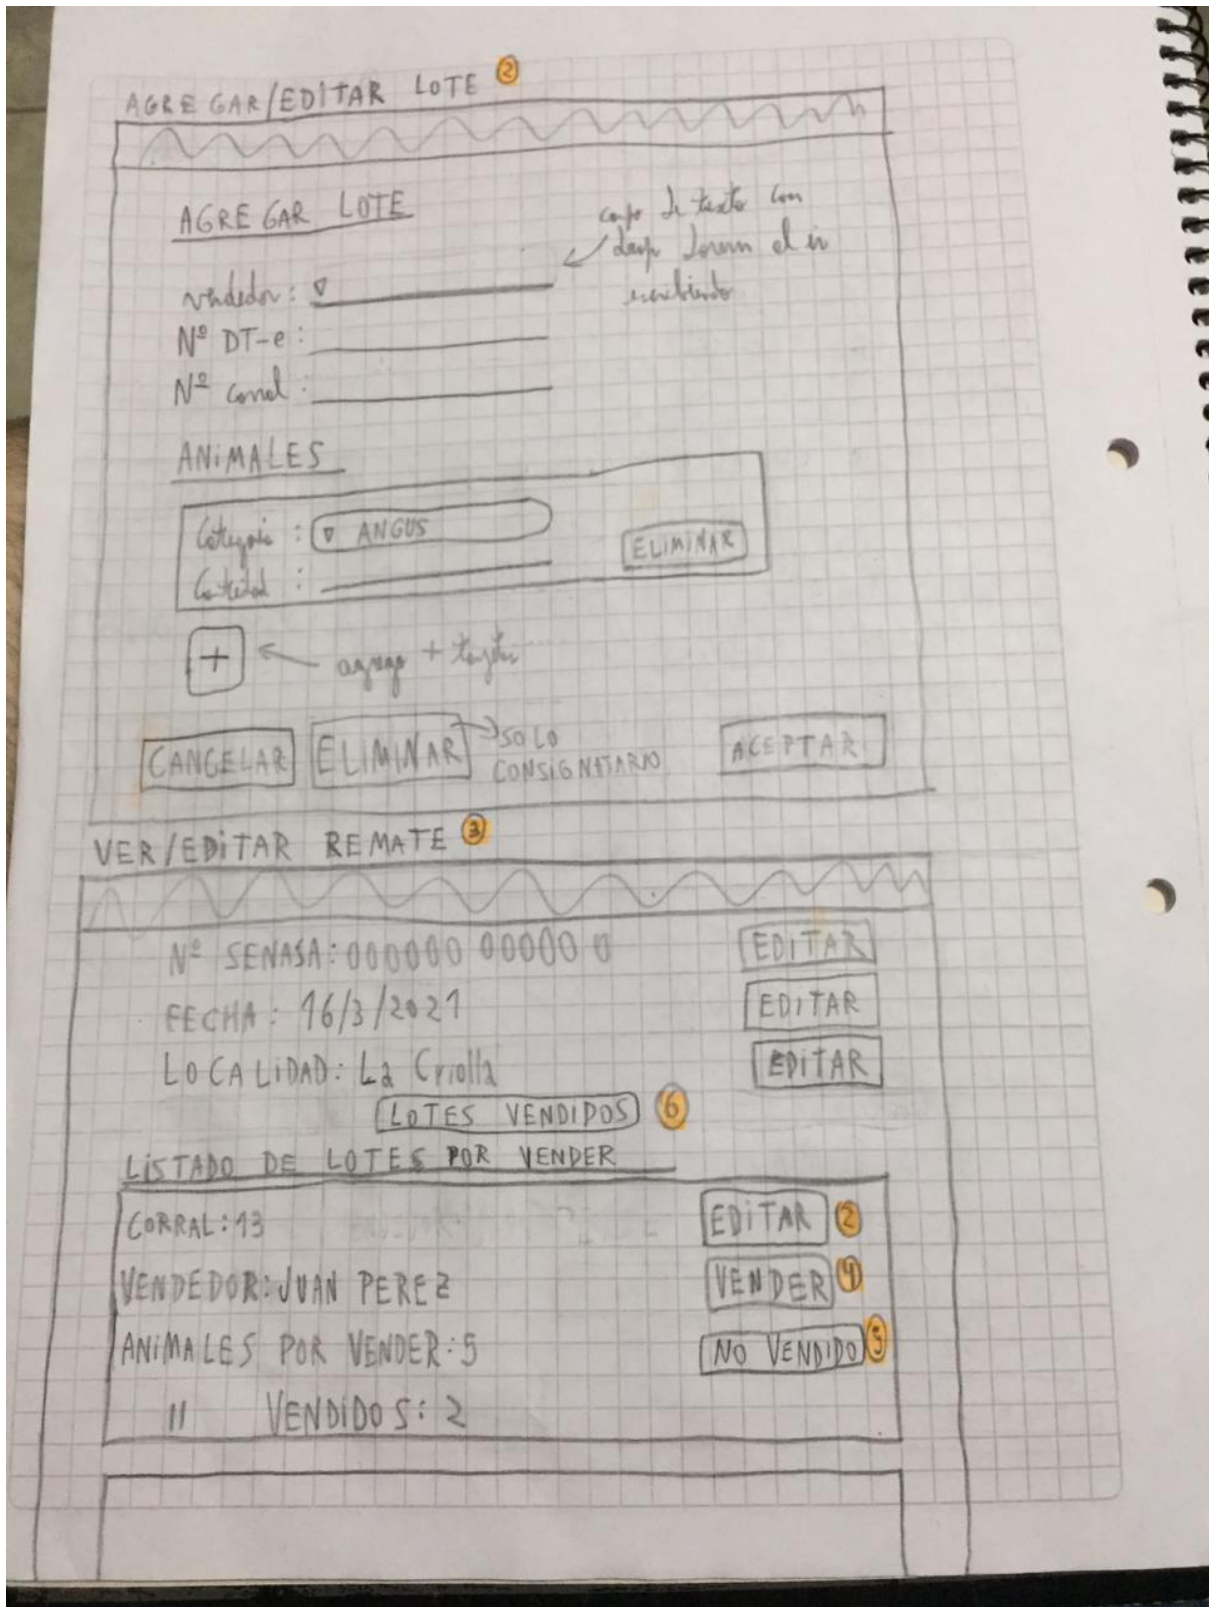 AGREGAR/EDITAR LOTE 2
AGREGAR LOTE
campo de texto con
al ir
escribiendo
vendedor:
Nº DT-e:
Nº corral:
ANIMALES
Categoria: ANGUS
ELIMINAR
Cantidad:
+ agrego + tarjetas
CANCELAR ELIMINAR SOLO
CONSIGNATARIO
ACEPTAR
VER/EDITAR REMATE 3
Nº SENASA: 000000 00000 0 EDITAR
FECHA: 16/3/2021 EDITAR
LOCALIDAD: La Criolla EDITAR
LOTES VENDIDOS 6
LISTADO DE LOTES POR VENDER
CORRAL: 13 EDITAR 2
VENDEDOR: JUAN PEREZ VENDER 4
ANIMALES POR VENDER: 5 NO VENDIDO 5
" VENDIDOS: 2